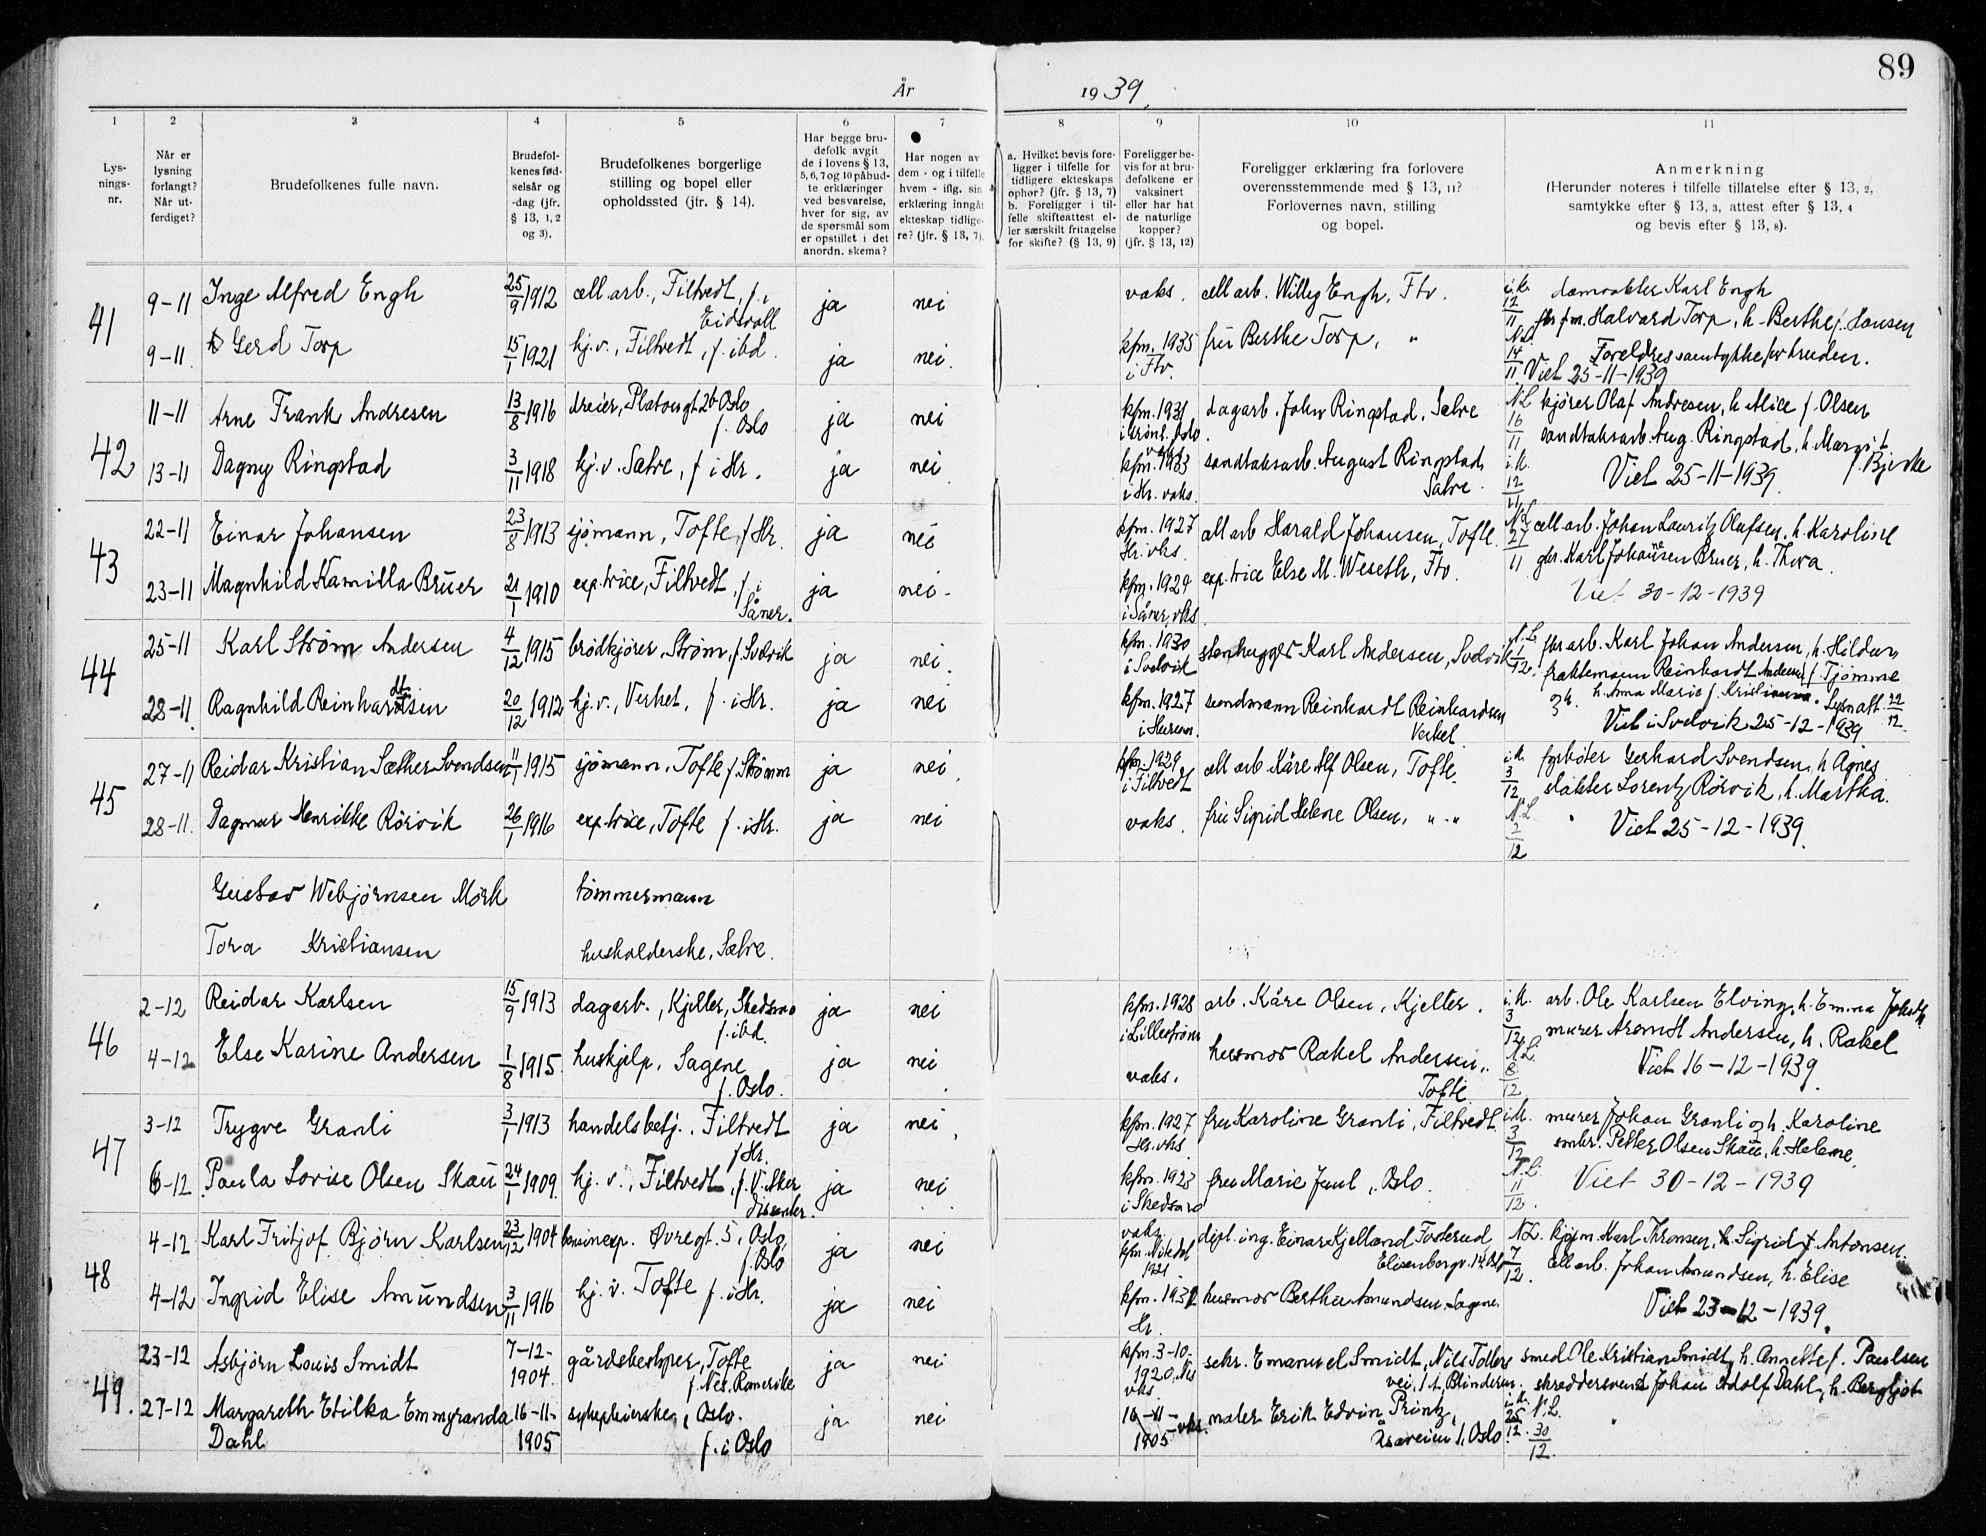 89
År 1939.
1 2 3 4 5 6 7 8 9 10 11
Lys-
nings-
nr.
Når er
lysning
forlangt?
Når ut-
ferdiget?
Brudefolkenes fulle navn.
Brudefol-
kenes fød-
selsår og
-dag (jfr.
§ 13, 1, 2
og 3).
Brudefolkenes borgerlige
stilling og bopel eller
opholdssted (jfr. § 14).
Har begge bru-
defolk avgit
de i lovens § 13,
5, 6, 7 og 10 påbud-
te erklæringer
ved besvarelse,
hver for sig, av
de spørsmål som
er opstillet i det
anordn. skema?
Har nogen av
dem - og i tilfelle
hvem - iflg. sin
erklæring inngått
ekteskap tidlige-
re? (jfr. § 13, 7).
a. Hvilket bevis fore-
ligger i tilfelle for
tidligere ekteskaps
ophør? (jfr. § 13, 7)
b. Foreligger i til-
felle skifteattest el-
ler særskilt fritagelse
for skifte? (§ 13, 9)
Foreligger be-
vis for at bru-
defolkene er
vaksinert
eller har hat
de naturlige
kopper?
(jfr. § 13, 12)
Foreligger erklæring fra forlovere
overensstemmende med § 13, 11?
Forlovernes navn, stilling
og bopel.
Anmerkning
(Herunder noteres i tilfelle tillatelse efter § 13, 2,
samtykke efter § 13, 3, attest efter § 13, 4
og bevis efter § 13, 8).
41
9-11 Inge Alfred Engh 25/9 1912 cell.arb., Filtvedt, f. i Eidsvoll ja nei vaks. cell arb. Willy Engh, Ftv. i.k. 12/11 Karl Engh
fm. Halvard Torp, h. Berthe f. Hansen
9-11. Gerd Torp 15/1 1921 hj.v., Filtvedt, f. ibd. ja nei. kfm. 1935 i Ftv. fru Berthe Torp, " N.L. 14/11 Foreldres samtykke for bruden.
Viet 25-11-1939
42
11-11 Arne Frank Andresen 13/8 1916 dreier, Platousgt 26 Oslo f. Oslo ja nei kfm. 1931 i Grønl. Oslo vaks. dagarb. John Ringstad, Sætre N.L. 16/11 kjører Olaf Andresen, h. Alice f. Olsen
13-11 Dagny Ringstad 3/11 1918 hj.v. Sætre, f. i Hr. ja nei. kfm. 1933 i Hr. vaks. sandtaksarb. August Ringstad, Sætre. i.k. 12/11 sandtaksarb. Aug. Ringstad, h. Margit f. Bjerke
Viet 25-11-1939.
43
22-11 Einar Johansen 23/8 1913 sjømann, Tofte, f. Hr. ja nei kfm. 1927 Hr. vks. cell arb Harald Johansen, Tofte. N.L. 27/11 cell arb. Johan Lauritz Olafsen, h. Karoline
23-11 Magnhild Kamilla Bruer 21/1 1910 exp.trice, Filtvedt, f. i Såner. ja nei- kfm. 1929 i Såner, vks exp.trice Else M. Weseth, Ftv. Karl Johannesen Bruer, h. Thora.
Viet 30-12-1939
44
25-11 Karl Strøm Andersen 4/12 1915 brødkjører, Strøm, f. Svelvik ja nei. kfm. 1930 i Svelvik stenhugger Karl Andersen, Svelvik N.L. 1/12. fbr arb. Karl Johan Andersen, h. Hildur
28-11. Ragnhild Reinhardtsen 20/12 1912 hj.v., Verket, f. i Hr. ja nei kfm. 1927 i Hurum. sandmann Reinhardt Reinhardsen Verket. fraktemann Reinhardt Andersen, f. Tjømme
h. Anna Marie f. Kristiansen. Lysn att 22/12.
Viet i Svelvik 25-12-1939
45
27-11 Reidar Kristian Sæther Svendsen 11/1 1915 sjømann, Tofte f. Strømm ja nei. kfm. 1929 i Filtvedt cell arb Kåre Alf Olsen, Tofte. i.k. 3/12 fyrbøter Gerhard Svendsen, h. Agnes
28-11. Dagmar Henrikke Rørvik 26/1 1916 exp.trice, Tofte f. i Hr. ja nei vaks. fru Sigrid Helene Olsen, " - " N.L. 2/12 slakter Lorentz Rørvik, h. Martha.
Viet 25-12-1939.
Gustav Webjørnsen Mørk tømmermann
Tora Kristiansen husholderske, Sætre.
46
2-12 Reidar Karlsen 15/9 1913 dagarb., Kjeller, Skedsmo f. ibd. ja nei kfm. 1928 i Lillestrøm arb. Kåre Olsen, Kjeller. i.k. 3/12 arb. Ole Karlsen Elving, h. Emma
4-12 Else Karine Andersen 1/8 1915. huskjelp, Sagene f. Oslo. ja nei vaks. husmor Rakel Andersen, Tofte N.L. 8/12 murer Arondt Andersen, h. Rakel
Viet 16-12-1939.
47
3-12 Trygve Granli 3/1 1913 handelsbetj. Filtvedt f. Hr. ja nei. kfm. 1927 Hr. vks. fru Karoline Granli, Filtvedt i.k. 3/12 murer Johan Granli og h. Karoline
6-12 Paula Lovise Olsen Skau 24/1 1909. hj.v., Filtvedt, f. V. Aker dissenter. ja nei kfm. 1923 i Skedsmo fru Marie Juul, Oslo. N.L. 11/12. Petter Olsen Skau, h. Helene.
Viet 30-12-1939
48
4-12 Karl Fritjof Bjørn Karlsen 23/12 1904 bensinexp. Øvregt. 5, Oslo, f. Oslo ja nei vaks. kfm. Nitedal 1921. dipl. ing. Einar Kjelland Fosterud Elisenbergv. 14 Oslo N.L. 7/12. Karl Thronsen, h. Sigrid f. Antonsen.
4-12 Ingrid Elise Amundsen 3/11 1916 hj.v. Tofte f. i Hr. ja nei kfm. 1931 Hr. husmor Berthe Amundsen, Sagene. cell arb. Johan Amundsen, h. Elise
Viet 23-12-1939.
49.
23-12 Asbjørn Louis Smidt 7-12-1904. gårdsbestyrer, Tofte f. Nes, Romerike ja nei kfm. 3-10-1920, Nes vks. sekr. Emanuel Smidt, Nils Tollers vei 1 A, Blindern. smed Ole Kristian Smidt, h. Annette f. Paulsen
27-12 Margareth Etilka Emmyranda Dahl 16-11-1905 sykepleierske, Oslo. f. i Oslo ja nei 16-11-1905 vks. maler Erik Edvin Printz, Åsaveien 1, Oslo. skreddersvend Johan Adolf Dahl, h. Bergljot
i.k. 25/12. N.L. 30/12.